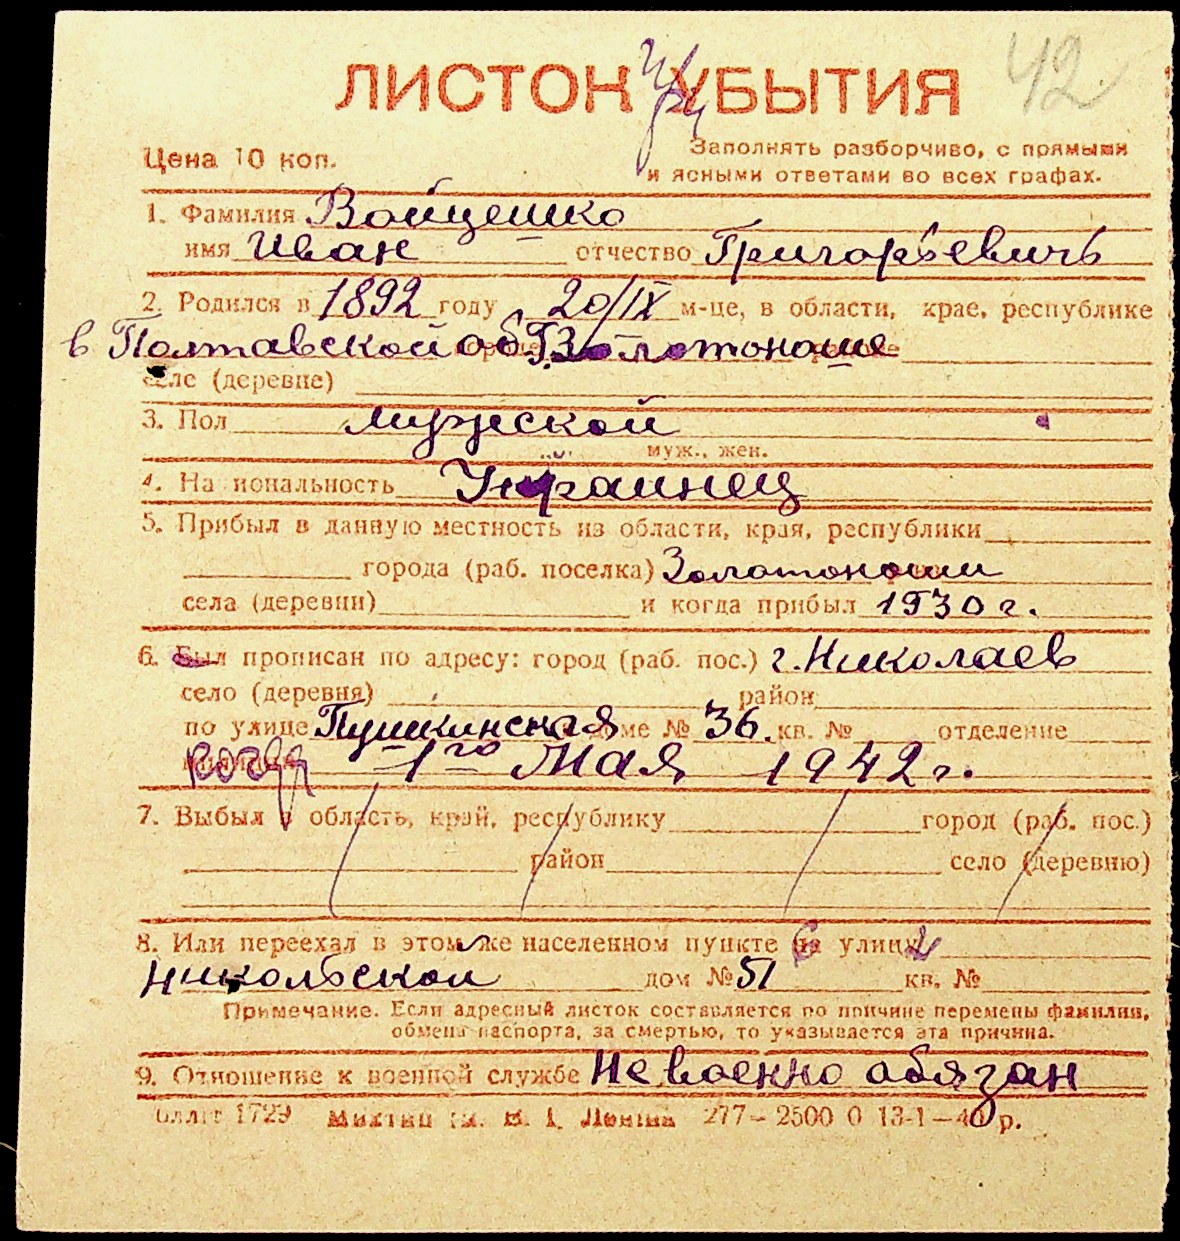 ЛИСТОК УБЫТИЯ 42
Цена 10 коп.
Заполнять разборчиво, с прямыми
и ясными ответами во всех графах.
1. Фамилия Войцешко
имя Иван отчество Григорьевичъ
2. Родился в 1892 году 20/IX м-це, в области, крае, республике
в Полтавской об. Г. Золотоноше
селе (деревне)
3. Пол мужской
муж., жен.
4. Национальность Украинец
5. Прибыл в данную местность из области, края, республики
города (раб. поселка) Золотоноши
села (деревни) и когда прибыл 1930 г.
6. Был прописан по адресу: город (раб. пос.) г. Николаев
село (деревня) район
по улице Пушкинская доме № 36 кв. № отделение
1го Мая 1942 г.
7. Выбыл в область, край, республику город (раб. пос.)
район село (деревню)
8. Или переехал в этом же населенном пункте на улицу
Никольской дом № 51 кв. №
Примечание. Если адресный листок составляется по причине перемены фамилии,
обмена паспорта, за смертью, то указывается эта причина.
9. Отношение к военной службе Не военно обязан
1729 им. В. І. Леніна 277–2500 0 13-1–40 р.